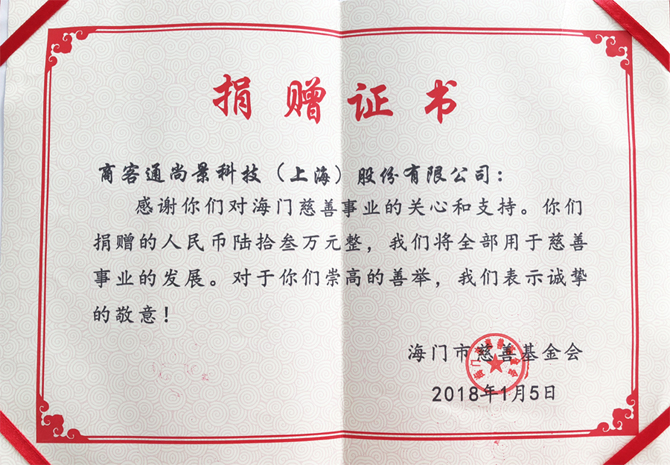 捐赠证书
商客通尚景科技（上海）股份有限公司：
感谢你们对海门慈善事业的关心和支持。你们
捐赠的人民币陆拾叁万元整，我们将全部用于慈善
事业的发展。对于你们崇高的善举，我们表示诚挚
的敬意！
海门市慈善基金会
2018年1月5日